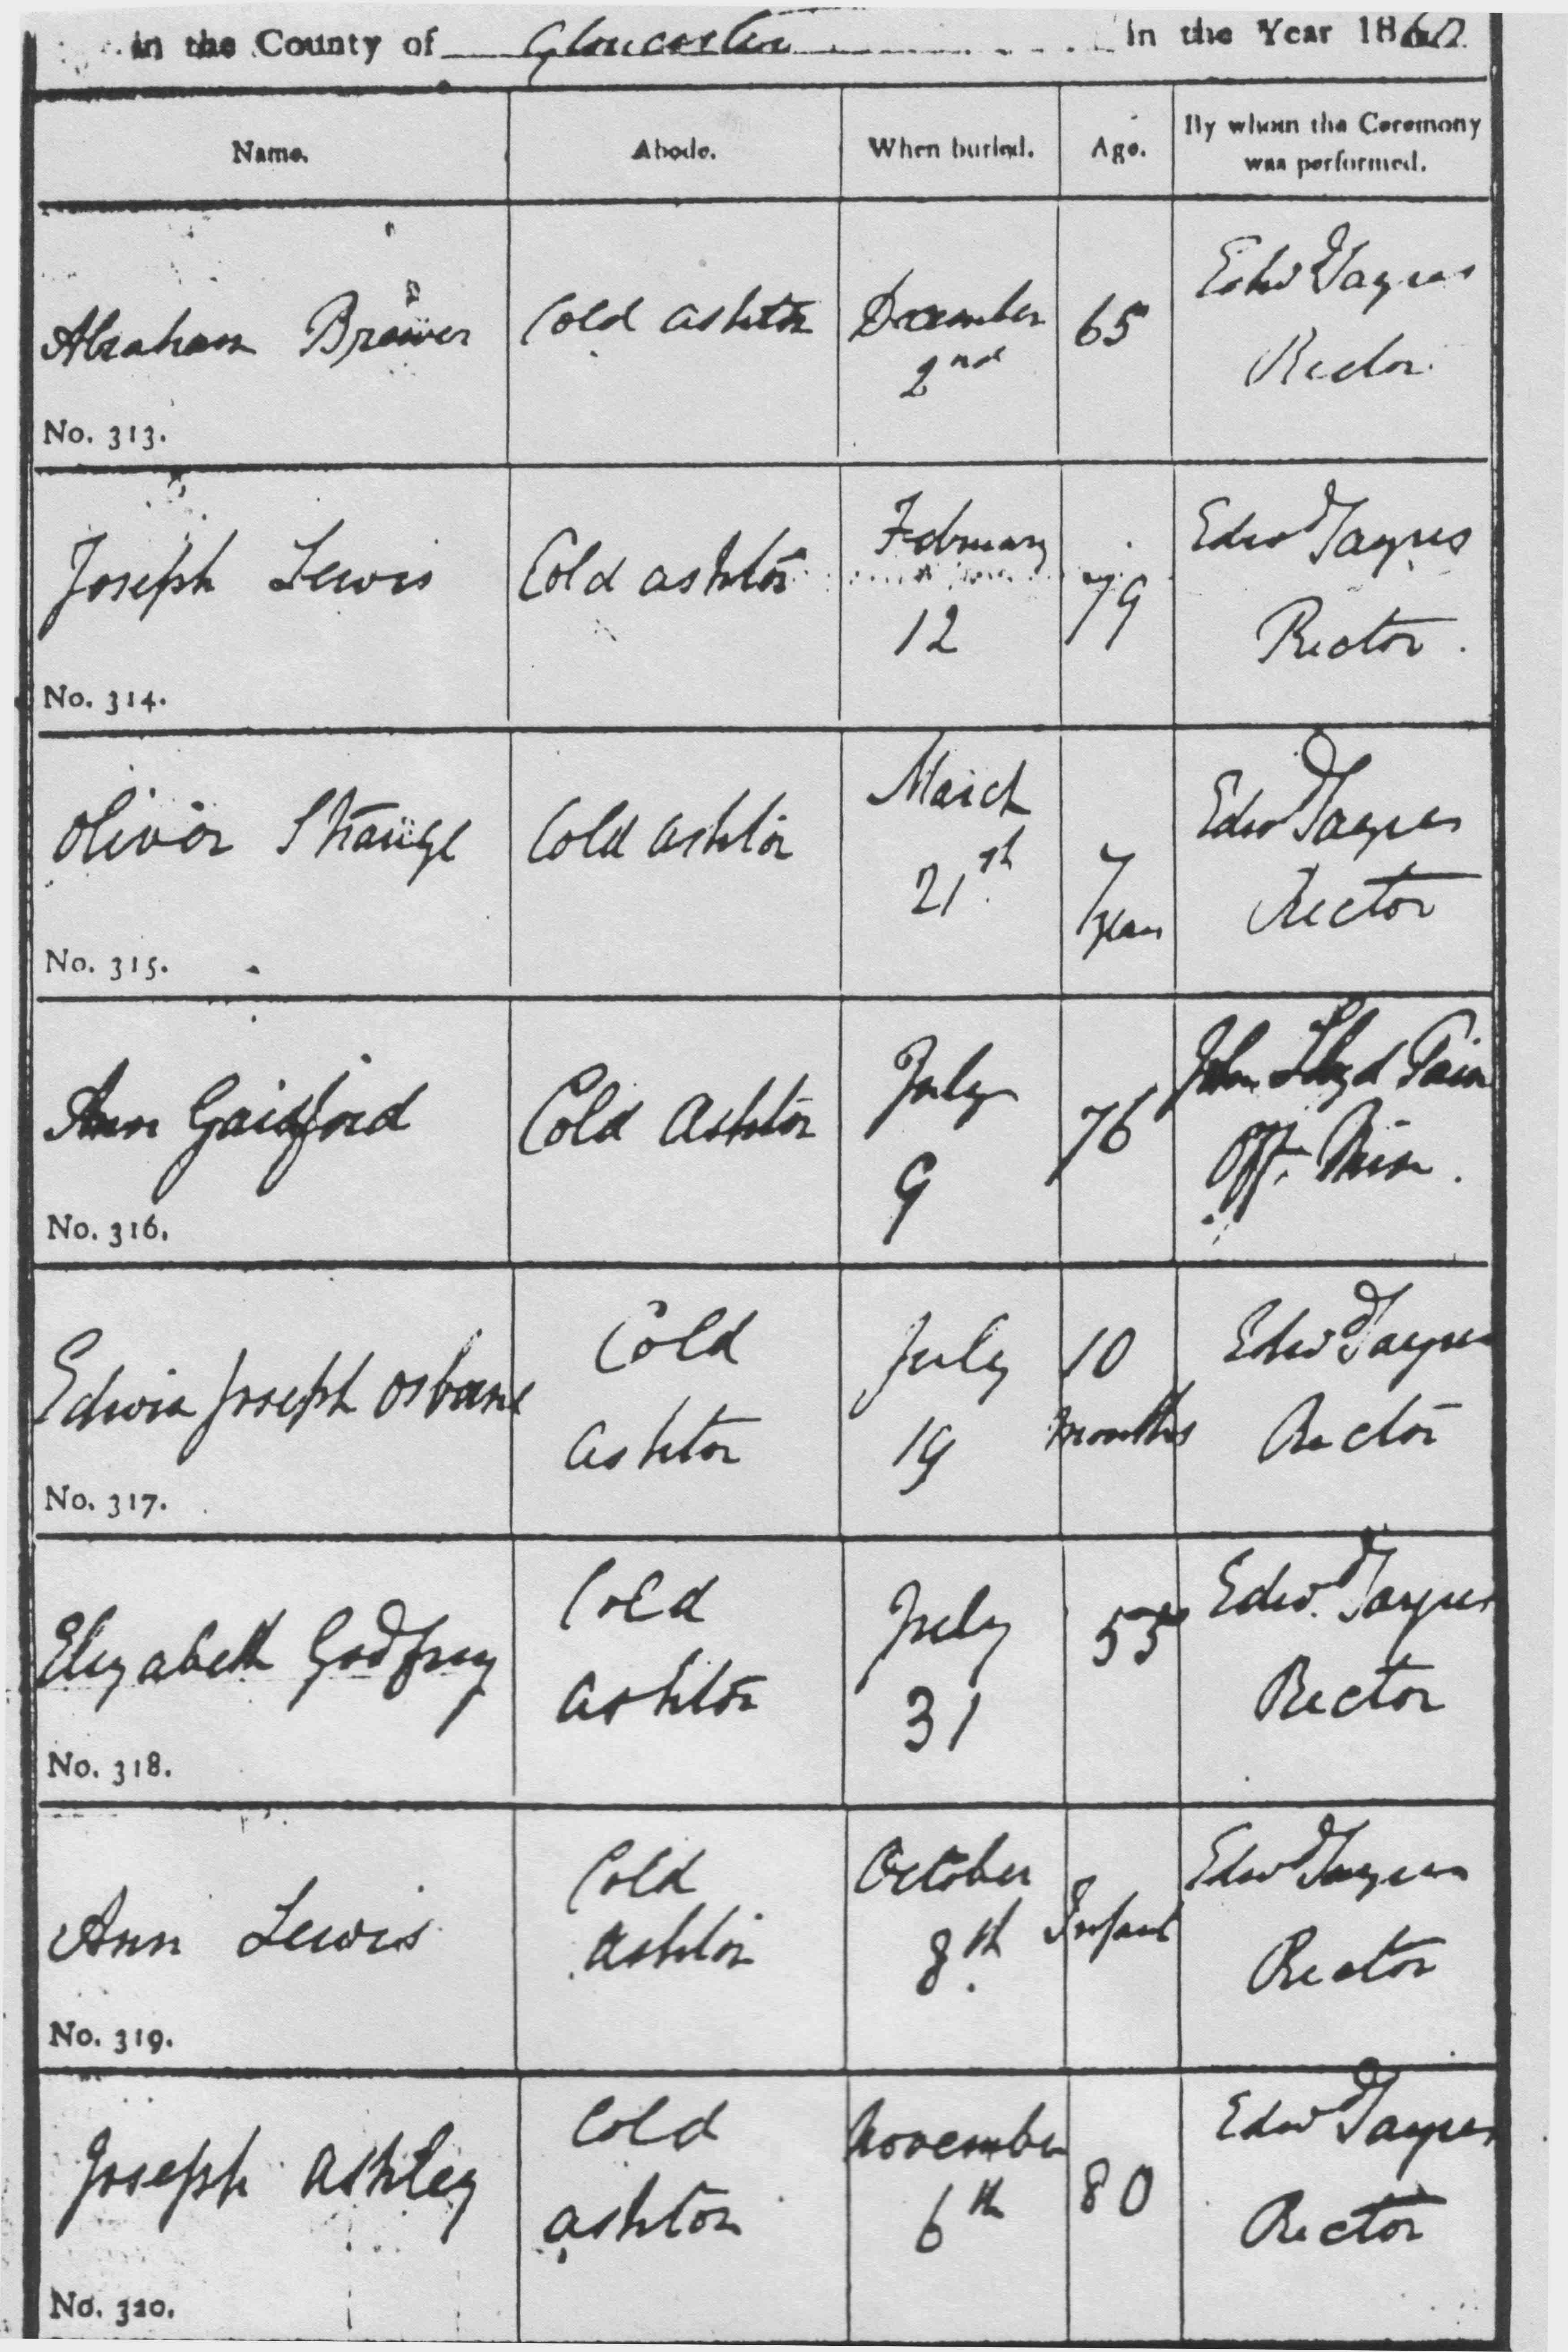 in the County of Gloucester in the Year 1860
Name. Abode. When buried. Age. By whom the Ceremony was performed.
Abraham Brewer Cold Ashton December 2nd 65 Edwd Sayres Rector.
No. 313.
Joseph Lewis Cold Ashton February 12 79 Edwd Sayres Rector.
No. 314.
Oliver Strange Cold Ashton March 21st 7 years Edwd Sayres Rector
No. 315.
Ann Gaisford Cold Ashton July 9 76 John Lloyd Off. Min.
No. 316.
Edwin Joseph Osborne Cold Ashton July 19 10 months Edwd Sayres Rector
No. 317.
Elizabeth Godfrey Cold Ashton July 31 55 Edwd Sayres Rector
No. 318.
Ann Lewis Cold Ashton October 8th Infant Edwd Sayres Rector
No. 319.
Joseph Ashley Cold Ashton November 6th 80 Edwd Sayres Rector
No. 320.